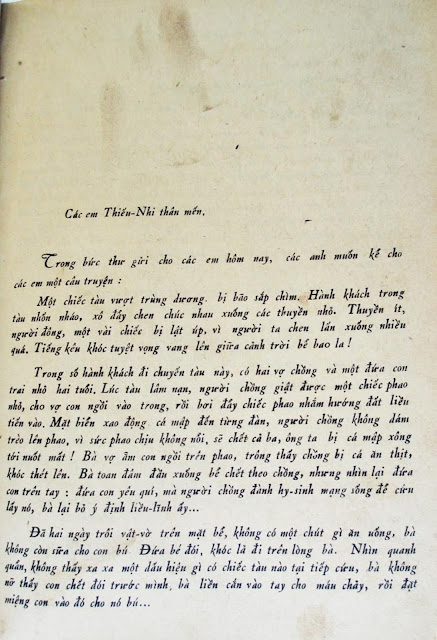 Các em Thiếu-Nhi thân mến,
Trong bức thư gửi cho các em hôm nay, các anh muốn kể cho
các em một câu truyện :
Một chiếc tàu vượt trùng dương, bị bão sắp chìm. Hành khách trong
tàu nhốn nháo, xô đẩy chen chúc nhau xuống các thuyền nhỏ. Thuyền ít,
người đông, một vài chiếc bị lật úp, vì người ta chen lấn xuống nhiều
quá. Tiếng kêu khóc tuyệt vọng vang lên giữa cảnh trời bể bao la !
Trong số hành khách đi chuyến tàu này, có hai vợ chồng và một đứa con
trai nhỏ hai tuổi. Lúc tàu lâm nạn, người chồng giật được một chiếc phao
nhỏ, cho vợ con ngồi vào trong, rồi bơi đẩy chiếc phao nhằm hướng đất liền
tiến vào. Mặt biển xao động cá mập đến từng đàn, người chồng không dám
trèo lên phao, vì sức phao chịu không nổi, sẽ chết cả ba, ông ta bị cá mập xông
tới nuốt mất ! Bà vợ ẵm con ngồi trên phao, trông thấy chồng bị cá ăn thịt,
khóc thét lên. Bà toan đâm đầu xuống bể chết theo chồng, nhưng nhìn lại đứa
con trên tay : đứa con yêu quí, mà người chồng đành hy-sinh mạng sống để cứu
lấy nó, bà lại bỏ ý định liều-lĩnh ấy...
Đã hai ngày trôi vật-vờ trên mặt bể, không có một chút gì ăn uống, bà
không còn sữa cho con bú Đứa bé đói, khóc lả đi trên lòng bà. Nhìn quanh
quẩn, không thấy xa xa một dấu hiệu gì có chiếc tàu nào tại tiếp cứu, bà không
nỡ thấy con chết đói trước mình, bà liền cắn vào tay cho máu chảy, rồi đặt
miệng con vào đó cho nó bú...